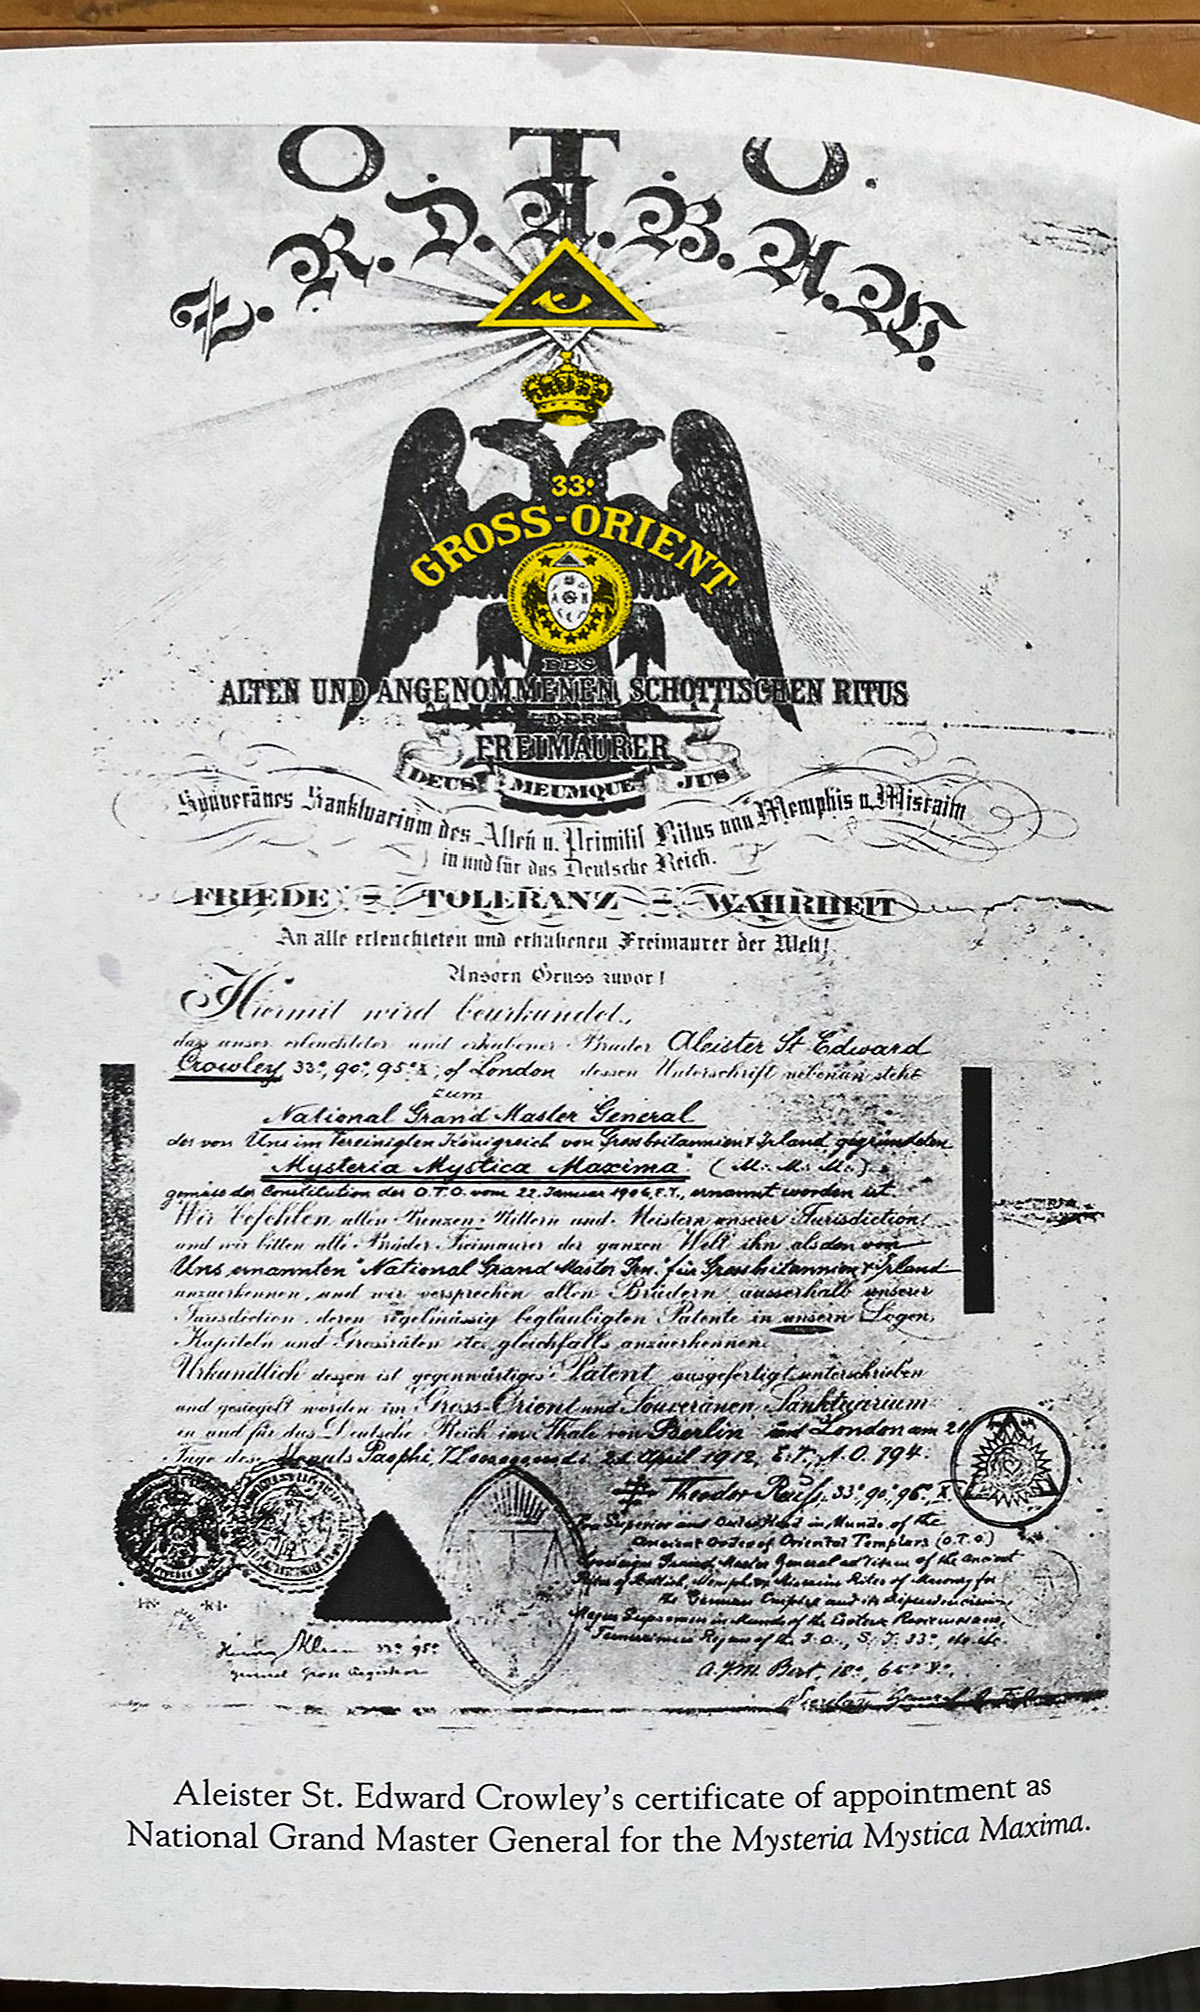 O. T. O.
Z. R. D. A. B. A. W.
33°
GROSS-ORIENT
DES
ALTEN UND ANGENOMMENEN SCHOTTISCHEN RITUS
DER
FREIMAURER
DEUS MEUMQUE JUS
Souveränes Sanktuarium des Alten u. Primitif Ritus von Memphis u. Misraim
in und für das Deutsche Reich.
FRIEDE - TOLERANZ - WAHRHEIT
An alle erleuchteten und erhabenen Freimaurer der Welt!
Unsern Gruss zuvor!
Hiermit wird beurkundet,
dass unser erleuchteter und erhabener Bruder Aleister St Edward
Crowley 33°, 90°, 95° X°, of London dessen Unterschrift nebenan steht
zum
National Grand Master General
der von Uns im Vereinigten Königreich von Grossbritannien & Irland gegründeten
"Mysteria Mystica Maxima" (M∴ M∴ M∴)
gemäss der Constitution des O.T.O. vom 22. Januar 1906, E.V., ernannt worden ist.
Wir befehlen allen Prinzen, Rittern und Meistern unserer Jurisdiction,
und wir bitten alle Brüder Freimaurer der ganzen Welt ihn als den von
Uns ernannten "National Grand Master Gen." für Grossbritannien & Irland
anzuerkennen, und wir versprechen allen Brüdern ausserhalb unserer
Jurisdiction, deren regelmässig beglaubigten Patente in unsern Logen,
Kapiteln und Grossräten etc. gleichfalls anzuerkennen.
Urkundlich dessen ist gegenwärtiges Patent ausgefertigt, unterschrieben
und gesiegelt worden im Gross-Orient und Souveränen Sanktuarium
in und für das Deutsche Reich im Thale von Berlin und London am 21
Tage des Monats Paophi, 21 April 1912, E.V., A.O. 794.
Theodor Reuss, 33° 90° 96° X°
Superior and Outer Head in Mundo, of the
Ancient Order of Oriental Templars (O.T.O.)
Grand Master General ad Vitam of the Ancient
Rites of Masonry for
the German Empire and its dependencies,
33° 95°
General Gross Registrar
33°, etc. etc.
18°,
Secretary General
Aleister St. Edward Crowley's certificate of appointment as
National Grand Master General for the Mysteria Mystica Maxima.